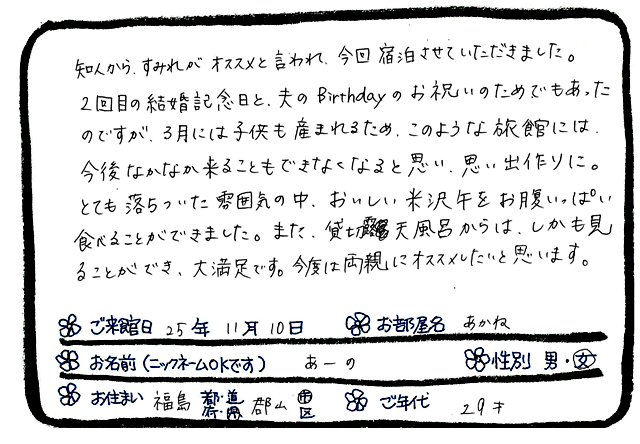 知人から、すみれがオススメと言われ、今回宿泊させていただきました。
2回目の結婚記念日と、夫のBirthdayのお祝いのためでもあった
のですが、3月には子供も産まれるため、このような旅館には、
今後なかなか来ることもできなくなると思い、思い出作りに。
とても落ちついた雰囲気の中、おいしい米沢牛をお腹いっぱい
食べることができました。また、貸切露天風呂からは、しかも見
ることができ、大満足です。今度は両親にオススメしたいと思います。
ご来館日 25年 11月 10日 お部屋名 あかね
お名前(ニックネームOKです) あーの 性別 男・女
お住まい 福島 都・道・府・県 郡山 市区 ご年代 29才